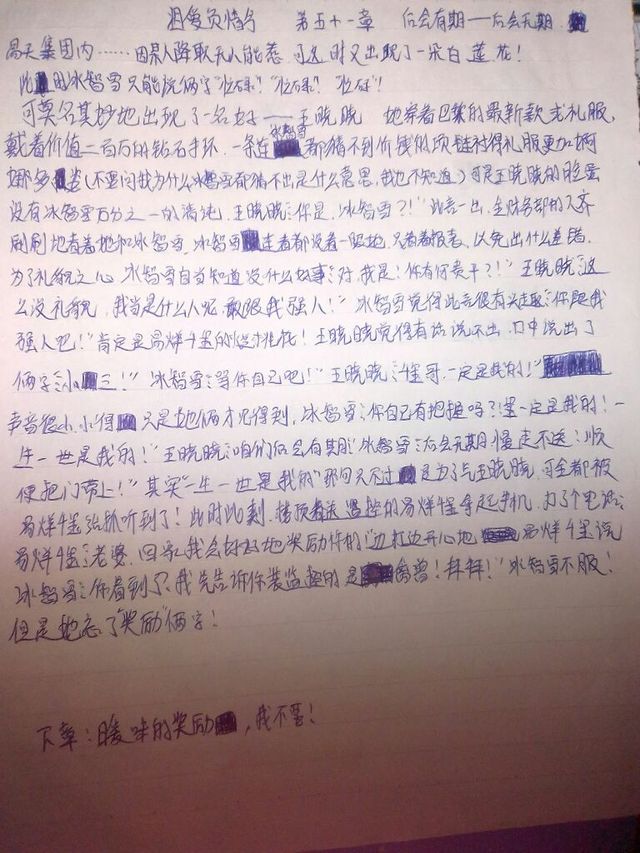 第五十一章 后会有期——后会无期
集团内……因果人降取无人能惹,可这时又出现了一朵白莲花!
此的冰智雪只能说俩字"
可莫名其妙地出现了一名女——王晓晓 她穿着巴黎的最新款式礼服,
戴着价值二百万的钻石手环,一条连冰智雪都猜不到价钱的项链衬得礼服更加婀
娜多姿(不要问我为什么冰智雪都猜不出是什么意思,我也不知道)可是王晓晓的脸蛋
没有冰智雪万分之一的清纯,王晓晓:"你是,冰智雪?!"此言一出,全财务部的人齐
刷刷地看着她和冰智雪,冰智雪连看都没看一眼她,只看着报表,以免出什么差错,
为了礼貌之心 冰智雪自当知道没什么故事:"对,我是!你有何贵干?!"王晓晓:"这
么没礼貌,我当是什么人呢,敢跟我强人!"冰智雪觉得此言很有兴趣:"你跟我
强人吧!"肯定是易烊千玺的烂桃花!王晓晓觉得有话说不出,口中说出了
俩字:"小三!"冰智雪:"当你自己吧!"王晓晓:"千玺哥,一定是我的!"
声音很小,小得只是她俩才听得到,冰智雪:"你自己有把握吗?!玺一定是我的!一
生一世是我的!"王晓晓:"咱们后会有期"冰智雪:"后会无期 慢走不送!顺
便把门带上!"其实"一生一世是我的"那句只不过是为了气王晓晓,可全都被
易烊千玺听到了!此时此刻,楼顶看监控的易烊千玺拿起手机,打了个电话:
易烊千玺:"老婆,回家我会好好地奖励你的"边打边开心地易烊千玺说
冰智雪:"你看到了?我先告诉你装监控的是禽兽!拜拜!"冰智雪不服!
但是她忘了"奖励"俩字!
下章:暧昧的奖励,我不要!